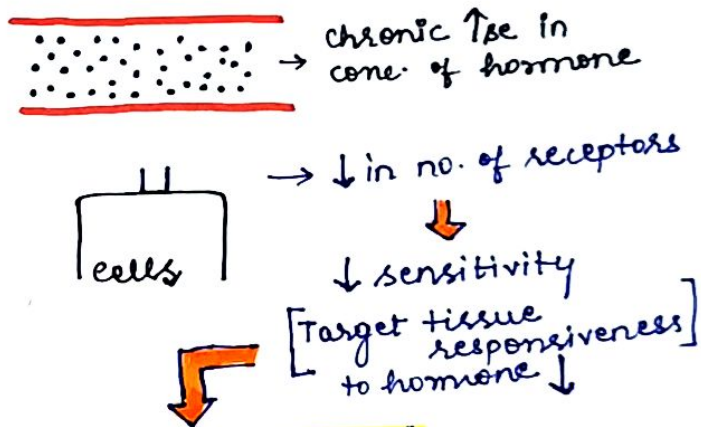 → chronic ↑se in
conc. of hormone
→ ↓ in no. of receptors
cells
↓ sensitivity
[Target tissue
responsiveness]
to hormone ↓